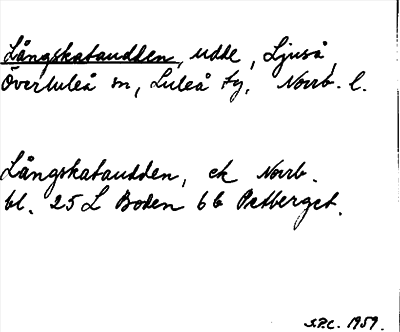 Långskataudden, udde, Ljuså,
Överluleå sn, Luleå tg, Norrb. l.
Långskataudden, ek Norrb.
bl. 25 L Boden 6 b Petberget.
S.P.C. 1959.